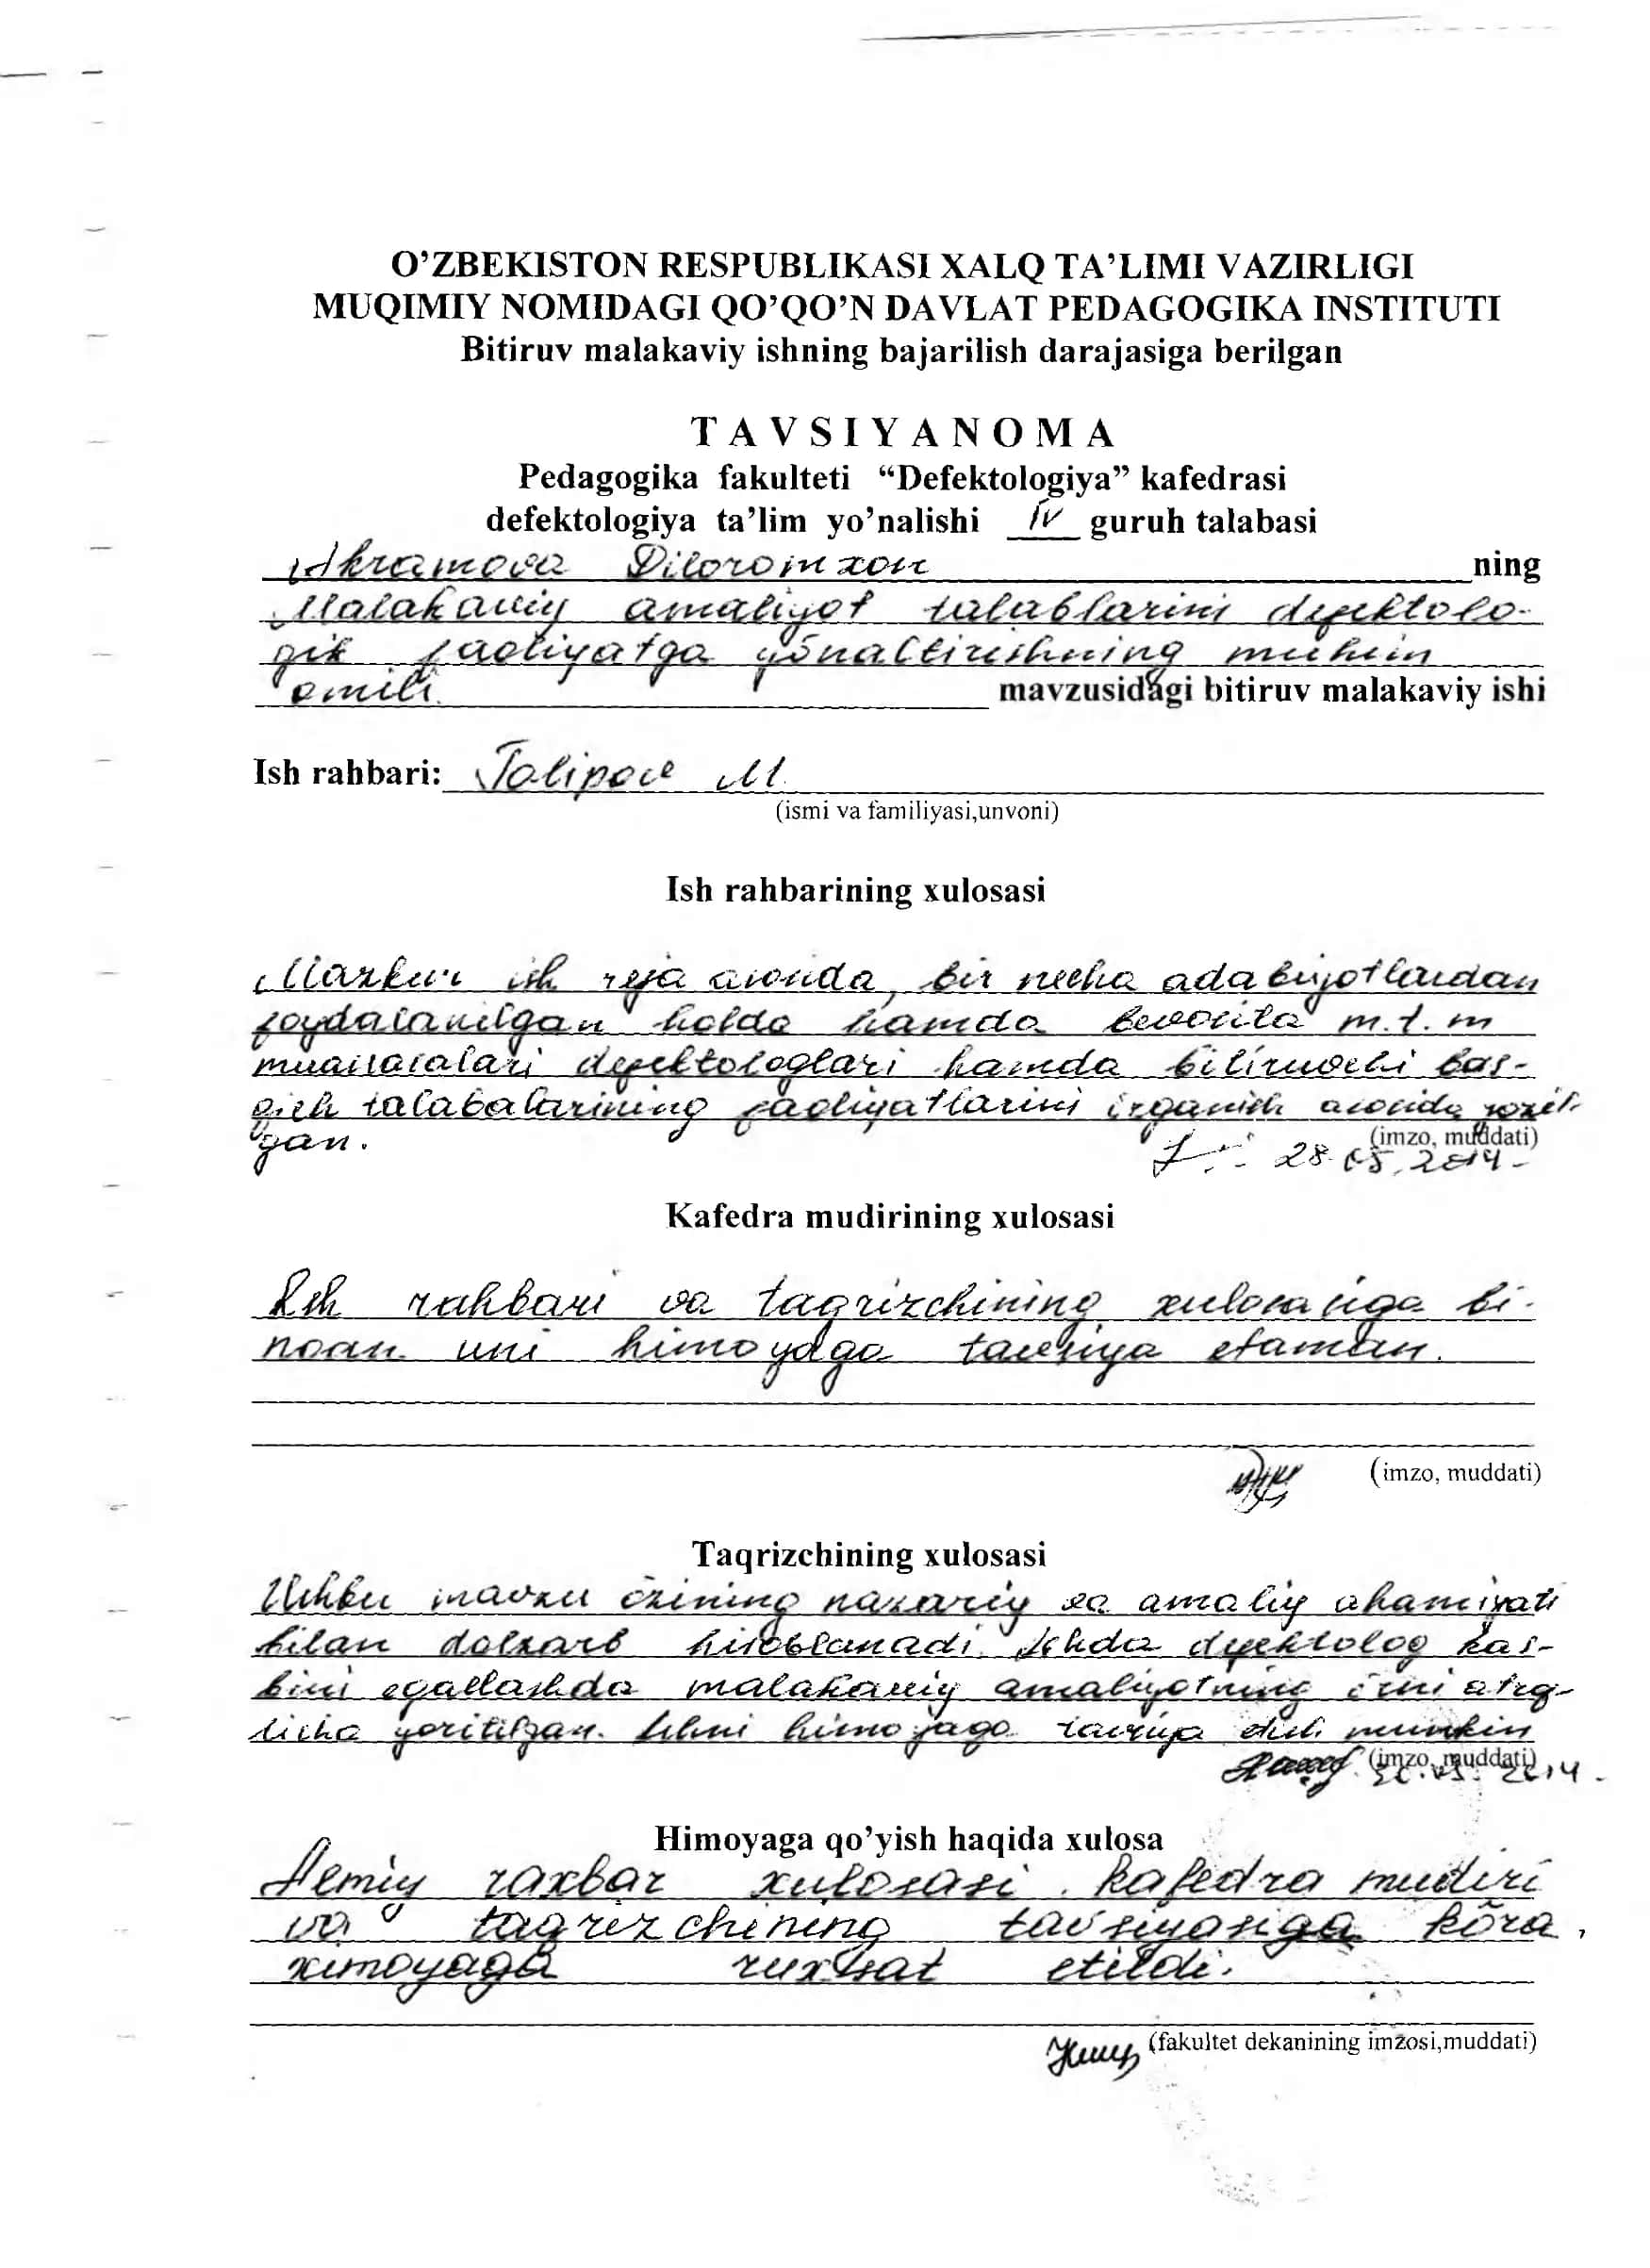 O’ZBEKISTON RESPUBLIKASI XALQ TA’LIMI VAZIRLIGI
MUQIMIY NOMIDAGI QO’QO’N DAVLAT PEDAGOGIKA INSTITUTI
Bitiruv malakaviy ishning bajarilish darajasiga berilgan
TAVSIYANOMA
Pedagogika fakulteti “Defektologiya” kafedrasi
defektologiya ta’lim yo’nalishi IV guruh talabasi
Akramova Diloromxon ning
Malakaviy amaliyot talablarini defektolo-
gik faoliyatga yõnaltirishning muhim
omili. mavzusidagi bitiruv malakaviy ishi
Ish rahbari: Tolipova M.
(ismi va familiyasi,unvoni)
Ish rahbarining xulosasi
Mazkur ish reja asosida, bir necha adabiyotlardan
foydalanilgan holda hamda bevosita m.t.m
muassasalari defektologlari hamda bitiruvchi bos-
qich talabalarining faoliyatlarini õrganish asosida yozil-
gan.
(imzo, muddati)
28.05.2014-
Kafedra mudirining xulosasi
Ish rahbari va taqrizchining xulosasiga bi-
noan uni himoyaga tavsiya etaman.
(imzo, muddati)
Taqrizchining xulosasi
Ushbu mavzu õzining nazariy va amaliy ahamiyati
bilan dolzarb hisoblanadi. Ishda defektolog kas-
bini egallashda malakaviy amaliyotning õrni atrof-
licha yoritilgan. Ishni himoyaga tavsiya etish mumkin
(imzo, muddati)
Himoyaga qo’yish haqida xulosa
Ilmiy raxbar xulosasi, kafedra mudiri
va taqrizchining tavsiyasiga kõra,
ximoyaga ruxsat etildi.
(fakultet dekanining imzosi,muddati)